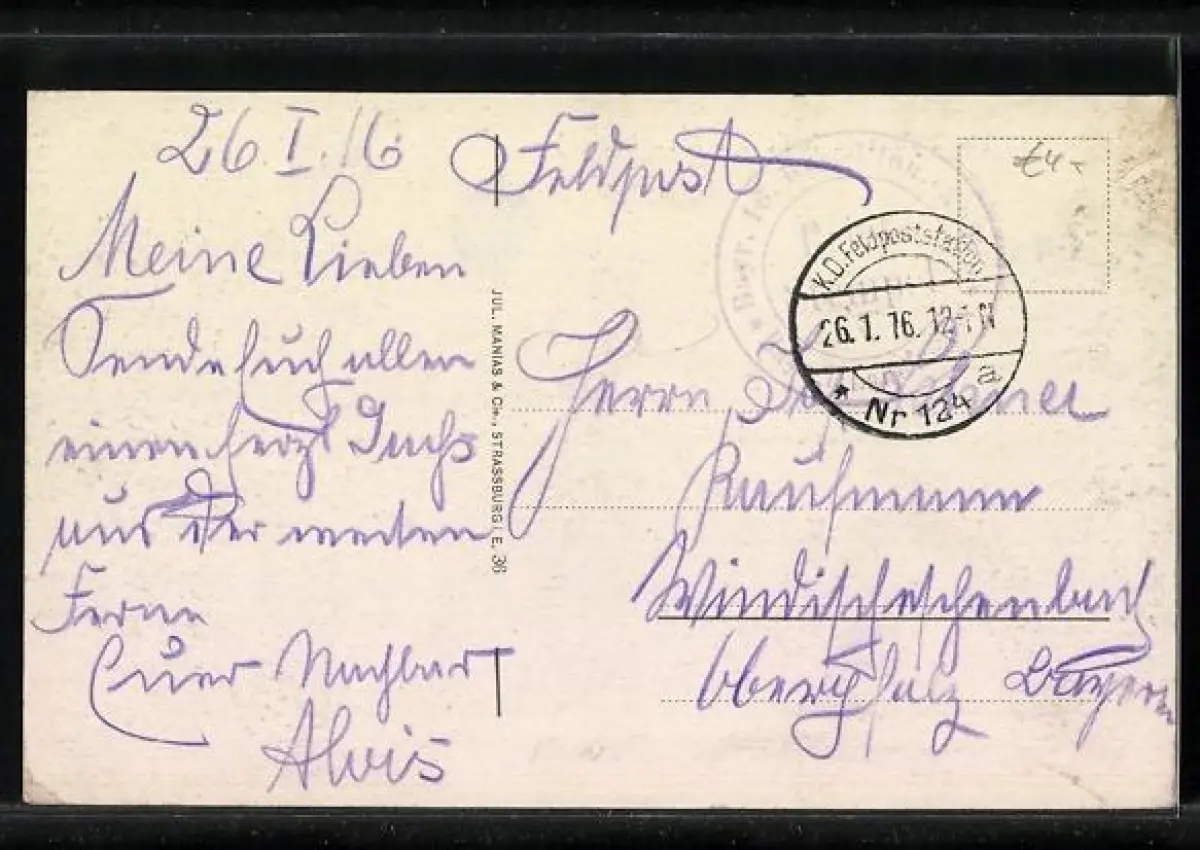 26 I. 16
Meine Lieben
Sende Euch allen
einen herzl
aus der weiten
Ferne
Euer Nachbar
Alois
JUL. MANIAS & Cie., STRASSBURG i. E. 36
Feldpost
K.D.Feldpoststation
26.1.16. 12-1 N
* Nr 124 a
Bayr.
Herrn
Kaufmann
Windischeschenbach
Oberpfalz Bayern
£4.-